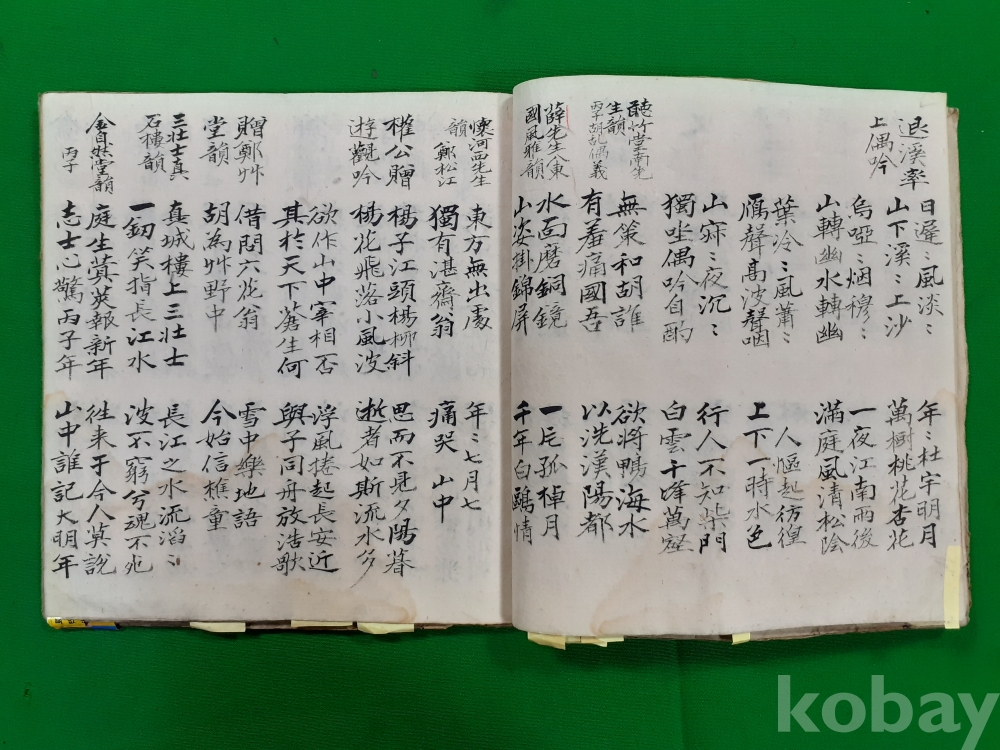 退溪率
上偶吟
日遲〻風淡〻
年〻杜宇明月
山下溪〻上沙
萬樹桃花杏花
烏啞〻烟穆〻
一夜江南雨後
山轉幽水轉幽
滿庭風清松陰
葉冷〻風蕭〻
人慪起彷徨
鴈聲高波聲咽
上下一時水色
山寂〻夜沉〻
行人不知柴門
獨坐偶吟自酌
白雲千峰萬壑
聽竹堂南先
生韻
丙子胡乱偶義
無策和胡誰
欲將鴨海水
有羞痛國吾
以洗漢陽都
薛先生八東
國風雅韻
水面磨銅鏡
一片孤棹月
山姿掛錦屏
千年白鷗情
懷河西先生
韻 鄭松江
東方無出處
年〻七月七
獨有湛齋〻翁
痛哭山中
權公贈
楊子江頭楊柳斜
思而不見夕陽暮
遊觀吟
楊花飛落小風波
逝者如斯流水多
欲作山中宰相否
浮風捲起長安近
其於天下蒼生何
與子同舟放浩歌
贈鄭艸
堂韻
借問六花翁
雪中樂地語
胡為艸野中
今始信樵童
三壯士真
石樓韻
真城樓上三壯士
長江之水流滔〻
一釰笑指長江水
波不窮兮魂不死
金自然堂韻
丙子
庭生蓂莢報新年
徃来于今人莫說
志士心驚丙子年
山中誰記大明年
kobay